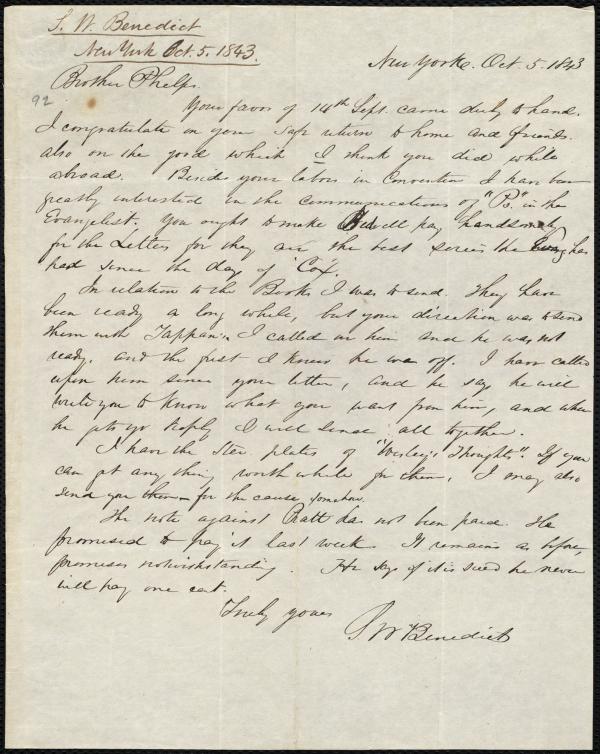 S. W. Benedict
New York Oct. 5. 1843.
New York. Oct. 5. 1843
Brother Phelps.
92
Your favor of 14th Sept. came duly to hand.
I congratulate on your safe return to home and friends.
also on the good which I think you did while
abroad. Besides your labors in Convention I have been
greatly interested in the communications of "P." in the
Evangelist. You ought to make well pay handsomely
for the Letters for they are the best series the has
had since the day of "Cox".
In relation to the Books I was to send. They have
been ready a long while, but your direction was to send
them with Tappan's I called on him and he was not
ready. and the first I knew he was off. I have called
upon him since your letter, and he says he will
write you to know what you want from him, and when
he gets yr Reply I will send all together.
I have the Ster. plates of "Wesley's Thoughts". If you
can get any thing worth while for them, I may also
send you them for the cause somehow.
The note against Pratt has not been paid. He
promised to pay it last week. It remains as before,
promises notwithstanding. He says if it is sued he never
will pay one cent.
Truly yours
S W Benedict